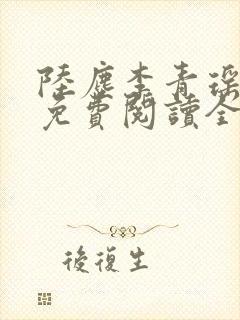 陸塵李青瑤
免費閱讀全
後復生